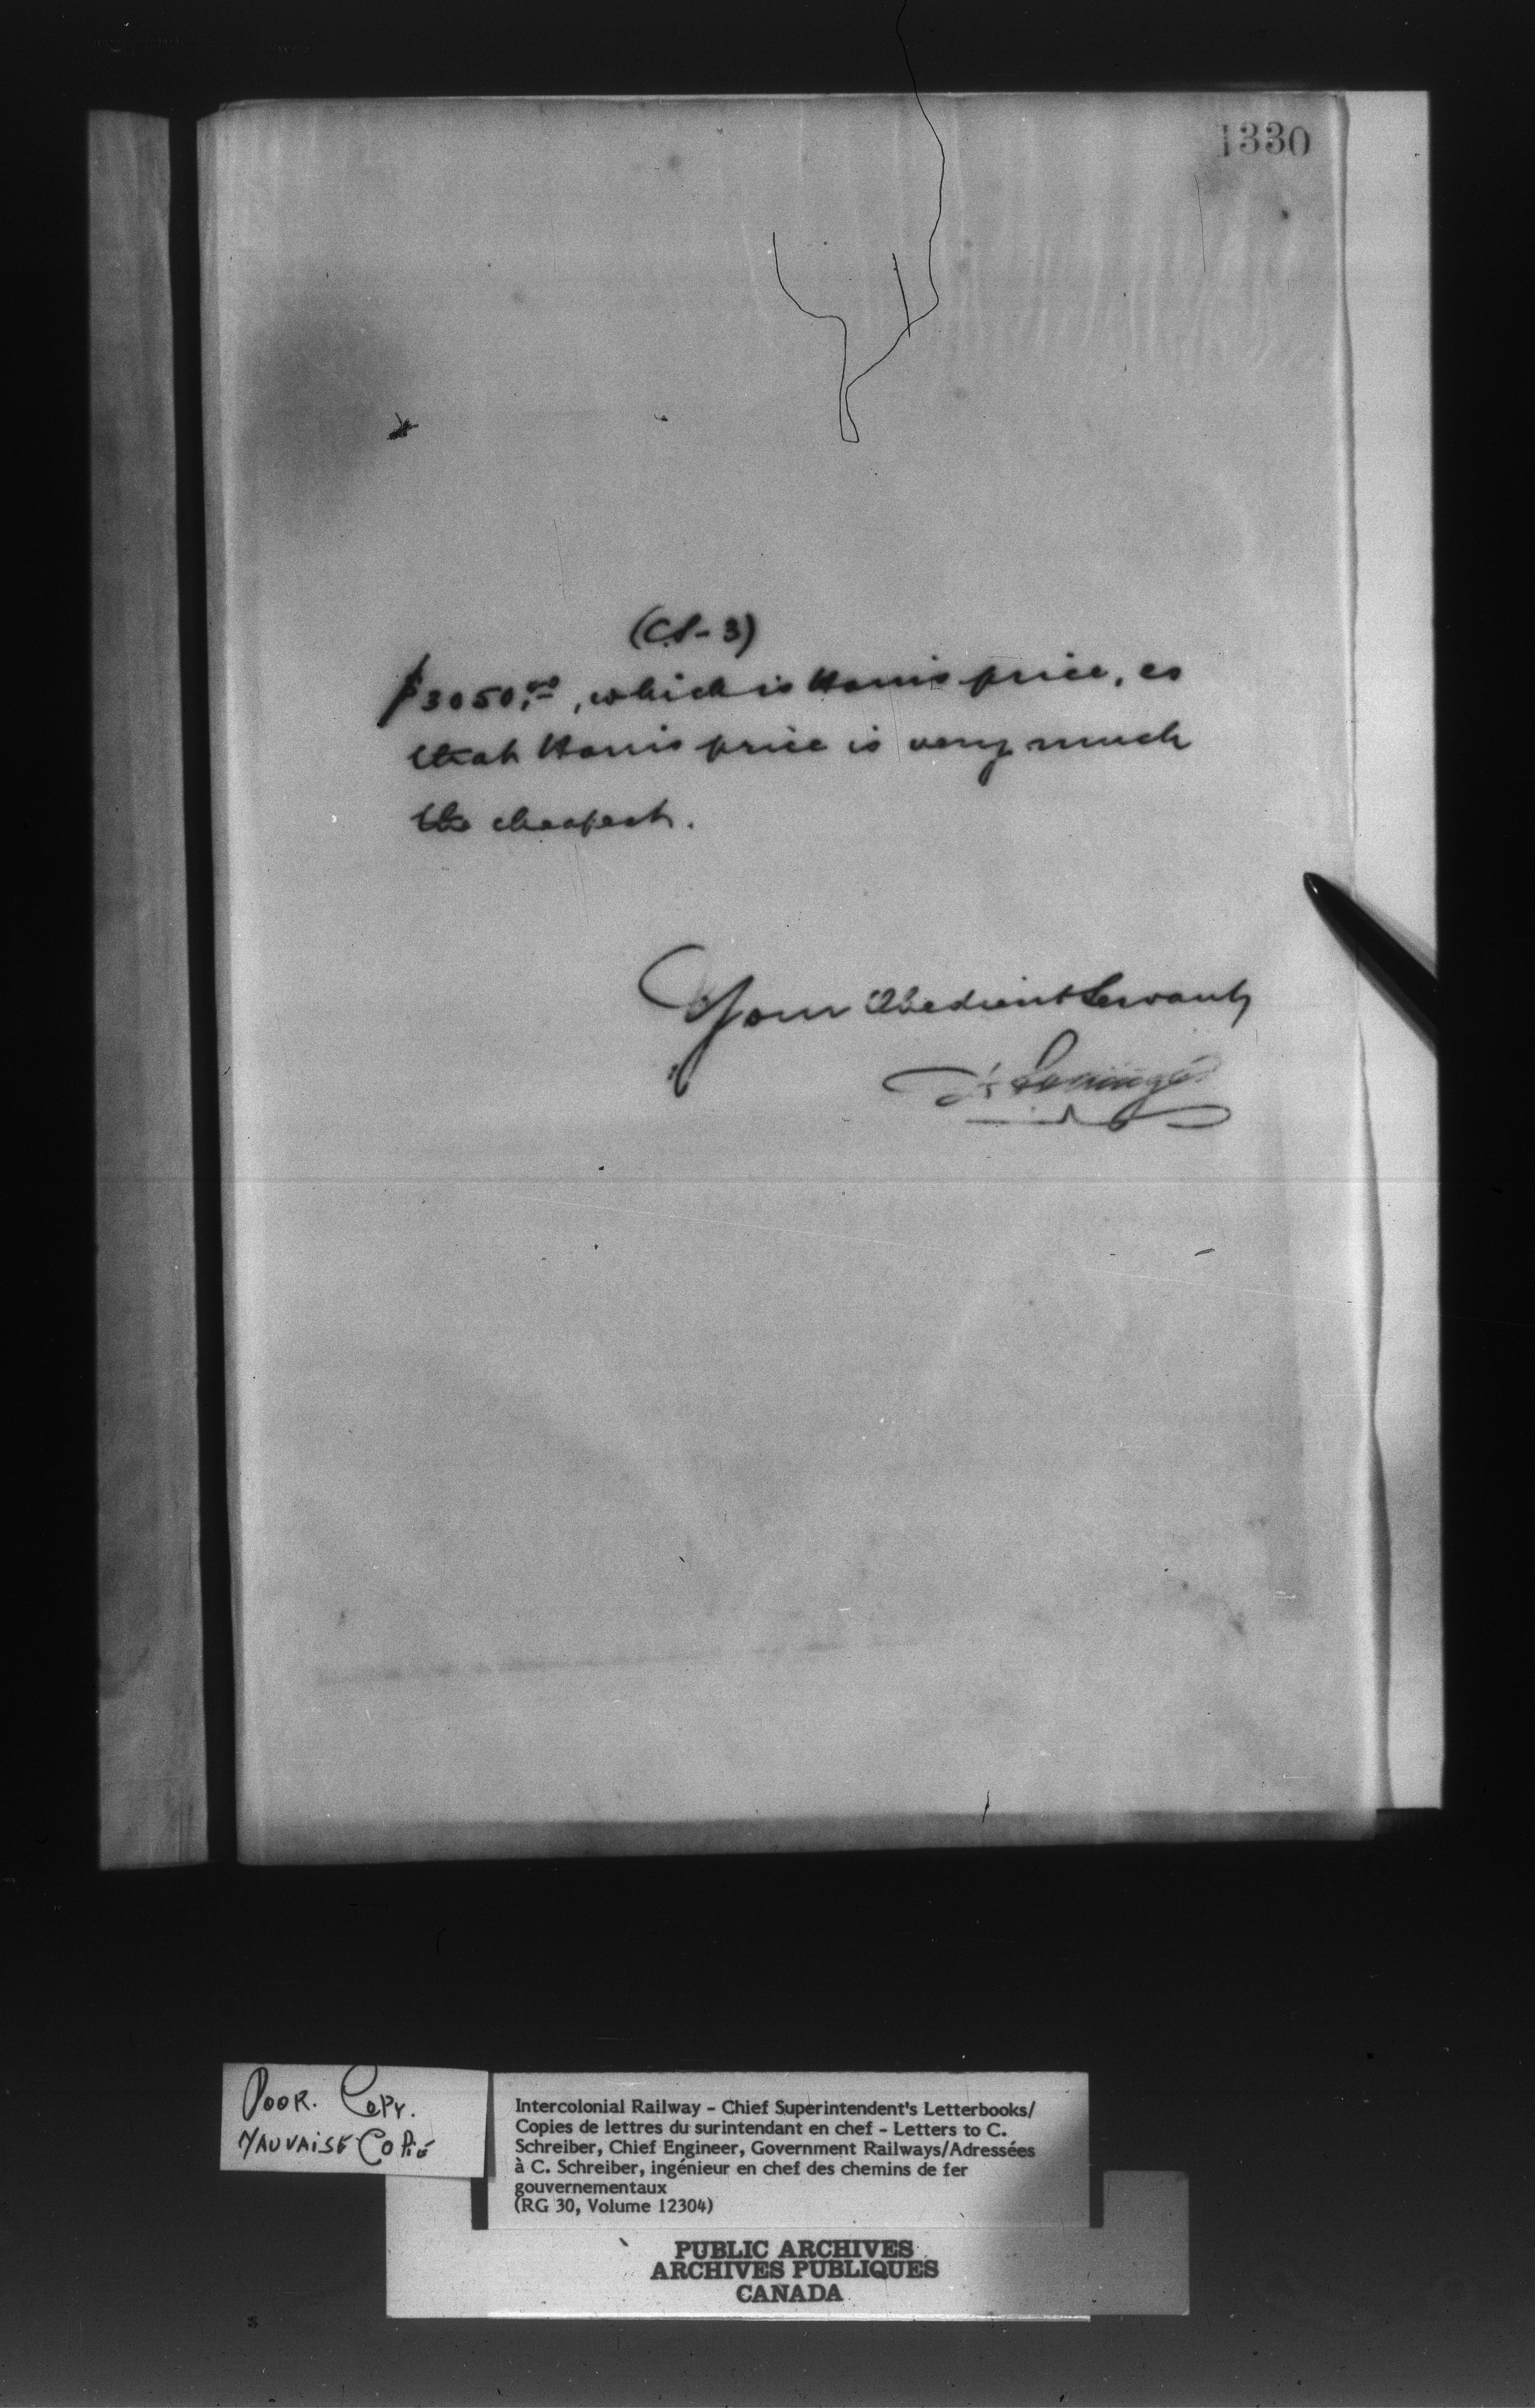 1330
(CS-3)
$3050.00, which is Harris price, es
that Harris price is very much
the cheapest.
Your Obedient Servant,
POOR. COPY.
MAUVAISE COPIE
Intercolonial Railway - Chief Superintendent's Letterbooks/
Copies de lettres du surintendant en chef - Letters to C.
Schreiber, Chief Engineer, Government Railways/Adressées
à C. Schreiber, ingénieur en chef des chemins de fer
gouvernementaux
(RG 30, Volume 12304)
PUBLIC ARCHIVES
ARCHIVES PUBLIQUES
CANADA